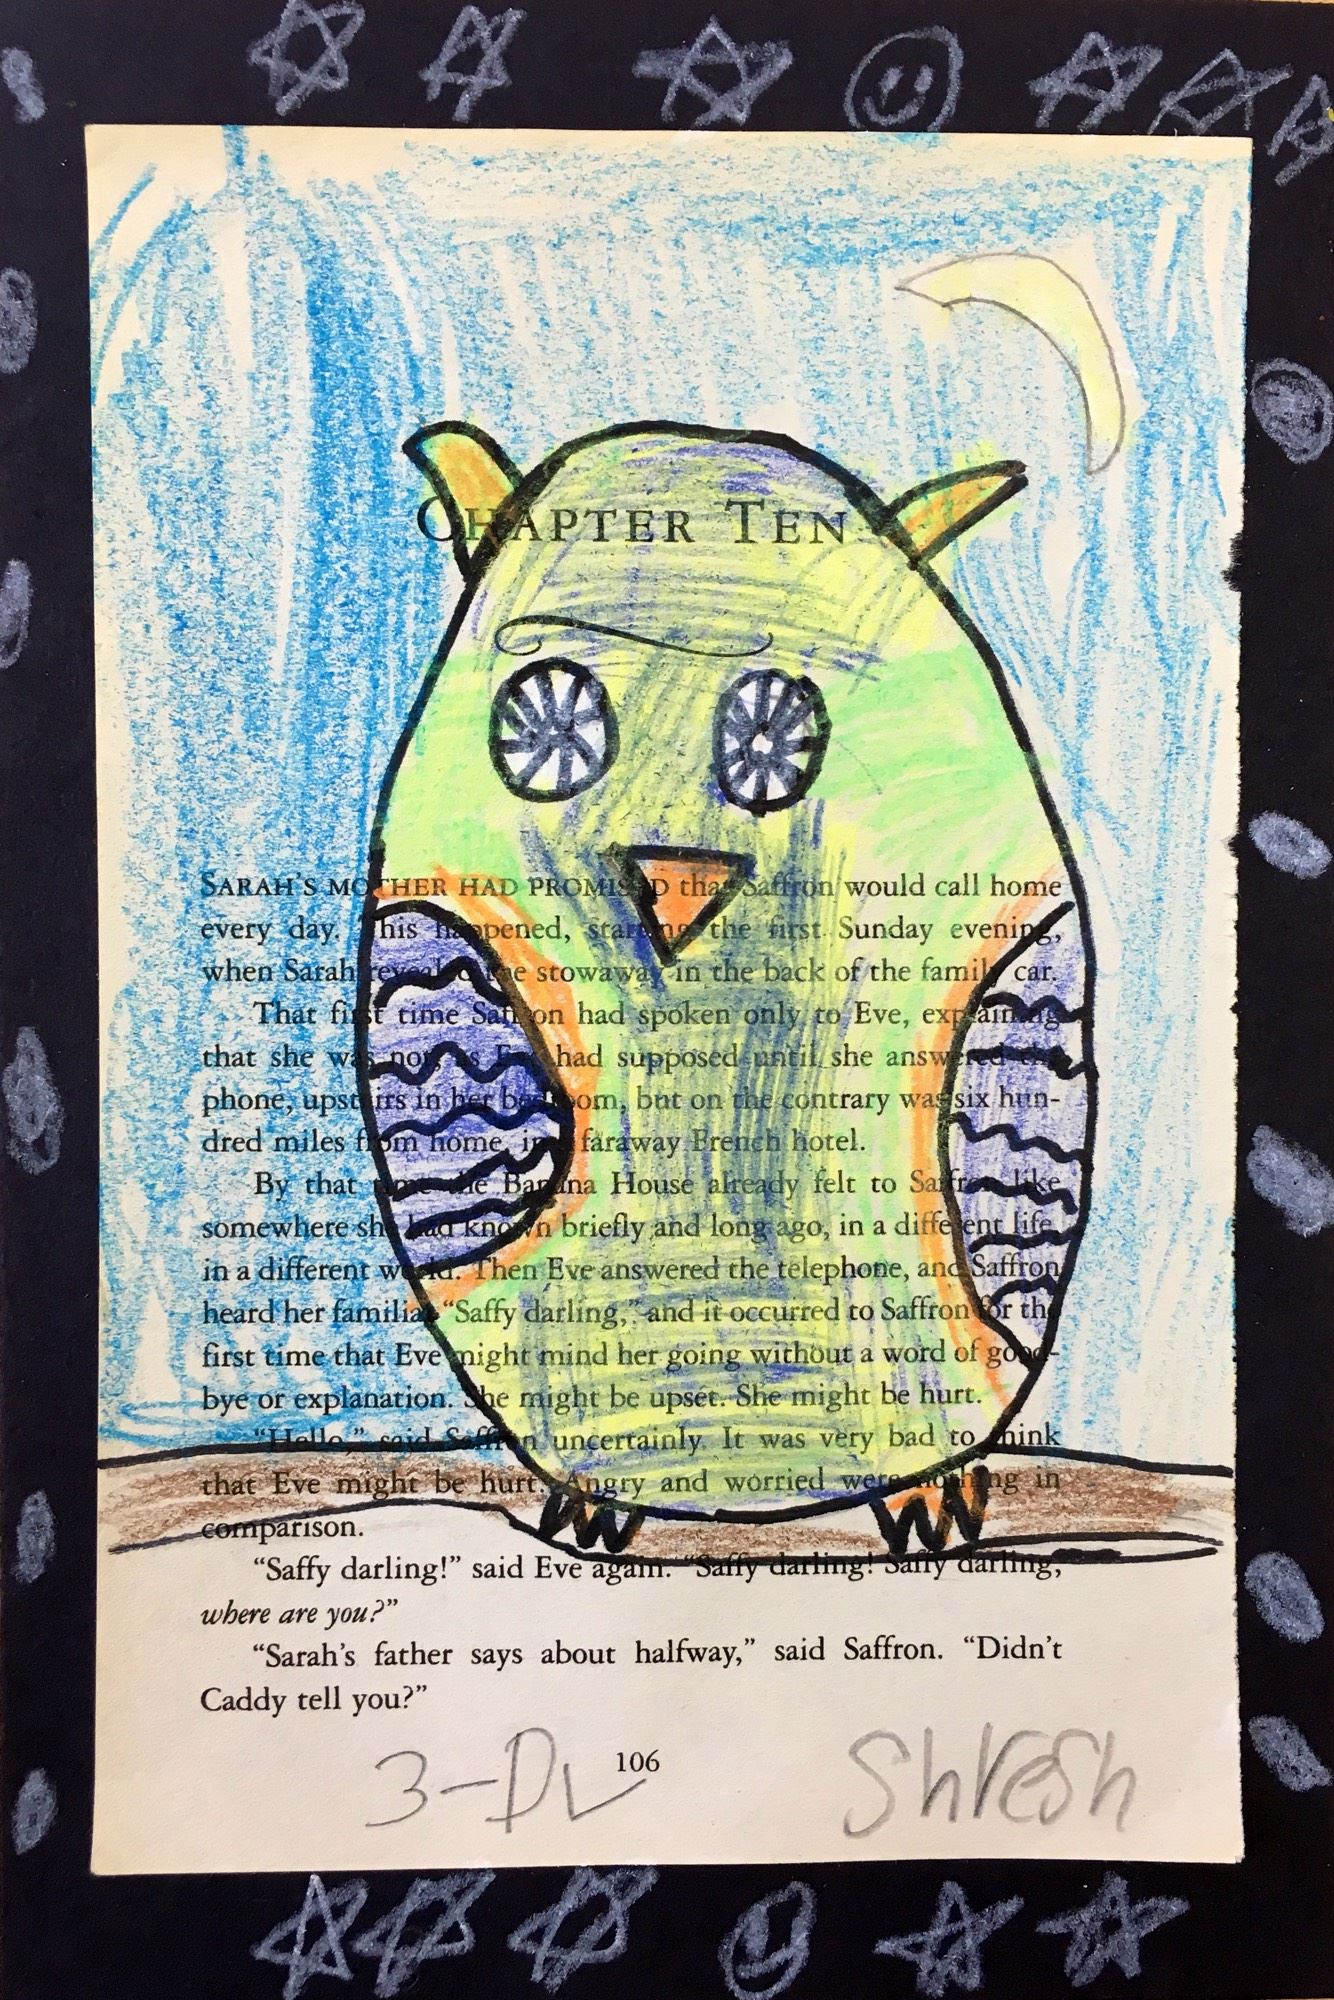 CHAPTER TEN
SARAH'S MOTHER HAD PROMISED that Saffron would call home
every day. This happened, starting the first Sunday evening,
when Sarah revealed the stowaway in the back of the family car.
That first time Saffron had spoken only to Eve, explaining
that she was not, as Eve had supposed until she answered the
phone, upstairs in her bedroom, but on the contrary was six hun-
dred miles from home, in a faraway French hotel.
By that time the Banana House already felt to Saffron like
somewhere she had known briefly and long ago, in a different life,
in a different world. Then Eve answered the telephone, and Saffron
heard her familiar "Saffy darling," and it occurred to Saffron for the
first time that Eve might mind her going without a word of good-
bye or explanation. She might be upset. She might be hurt.
"Hello," said Saffron uncertainly. It was very bad to think
that Eve might be hurt. Angry and worried were nothing in
comparison.
"Saffy darling!" said Eve again. "Saffy darling! Saffy darling,
where are you?"
"Sarah's father says about halfway," said Saffron. "Didn't
Caddy tell you?"
106
3-DL Shresh